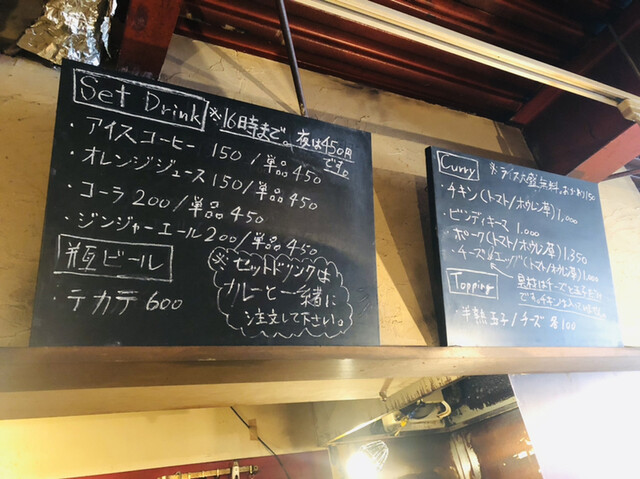 Set Drink
※16時まで。夜は450円です。
・アイスコーヒー 150/単品450
・オレンジジュース 150/単品450
・コーラ 200/単品450
・ジンジャーエール 200/単品450
瓶ビール
・テカテ 600
※セットドリンクは
カレーと一緒に
注文して下さい。
Curry
※ライス大盛無料、おかわり150
・チキン(トマト/ホウレン草) 1,000
・ビンディキーマ 1,000
・ポーク(トマト/ホウレン草) 1,350
・チーズ&エッグ(トマト/ホウレン草)
Topping
具材はチーズと玉子だけ
です。チキンは入っていません。
・半熟玉子/チーズ 各100